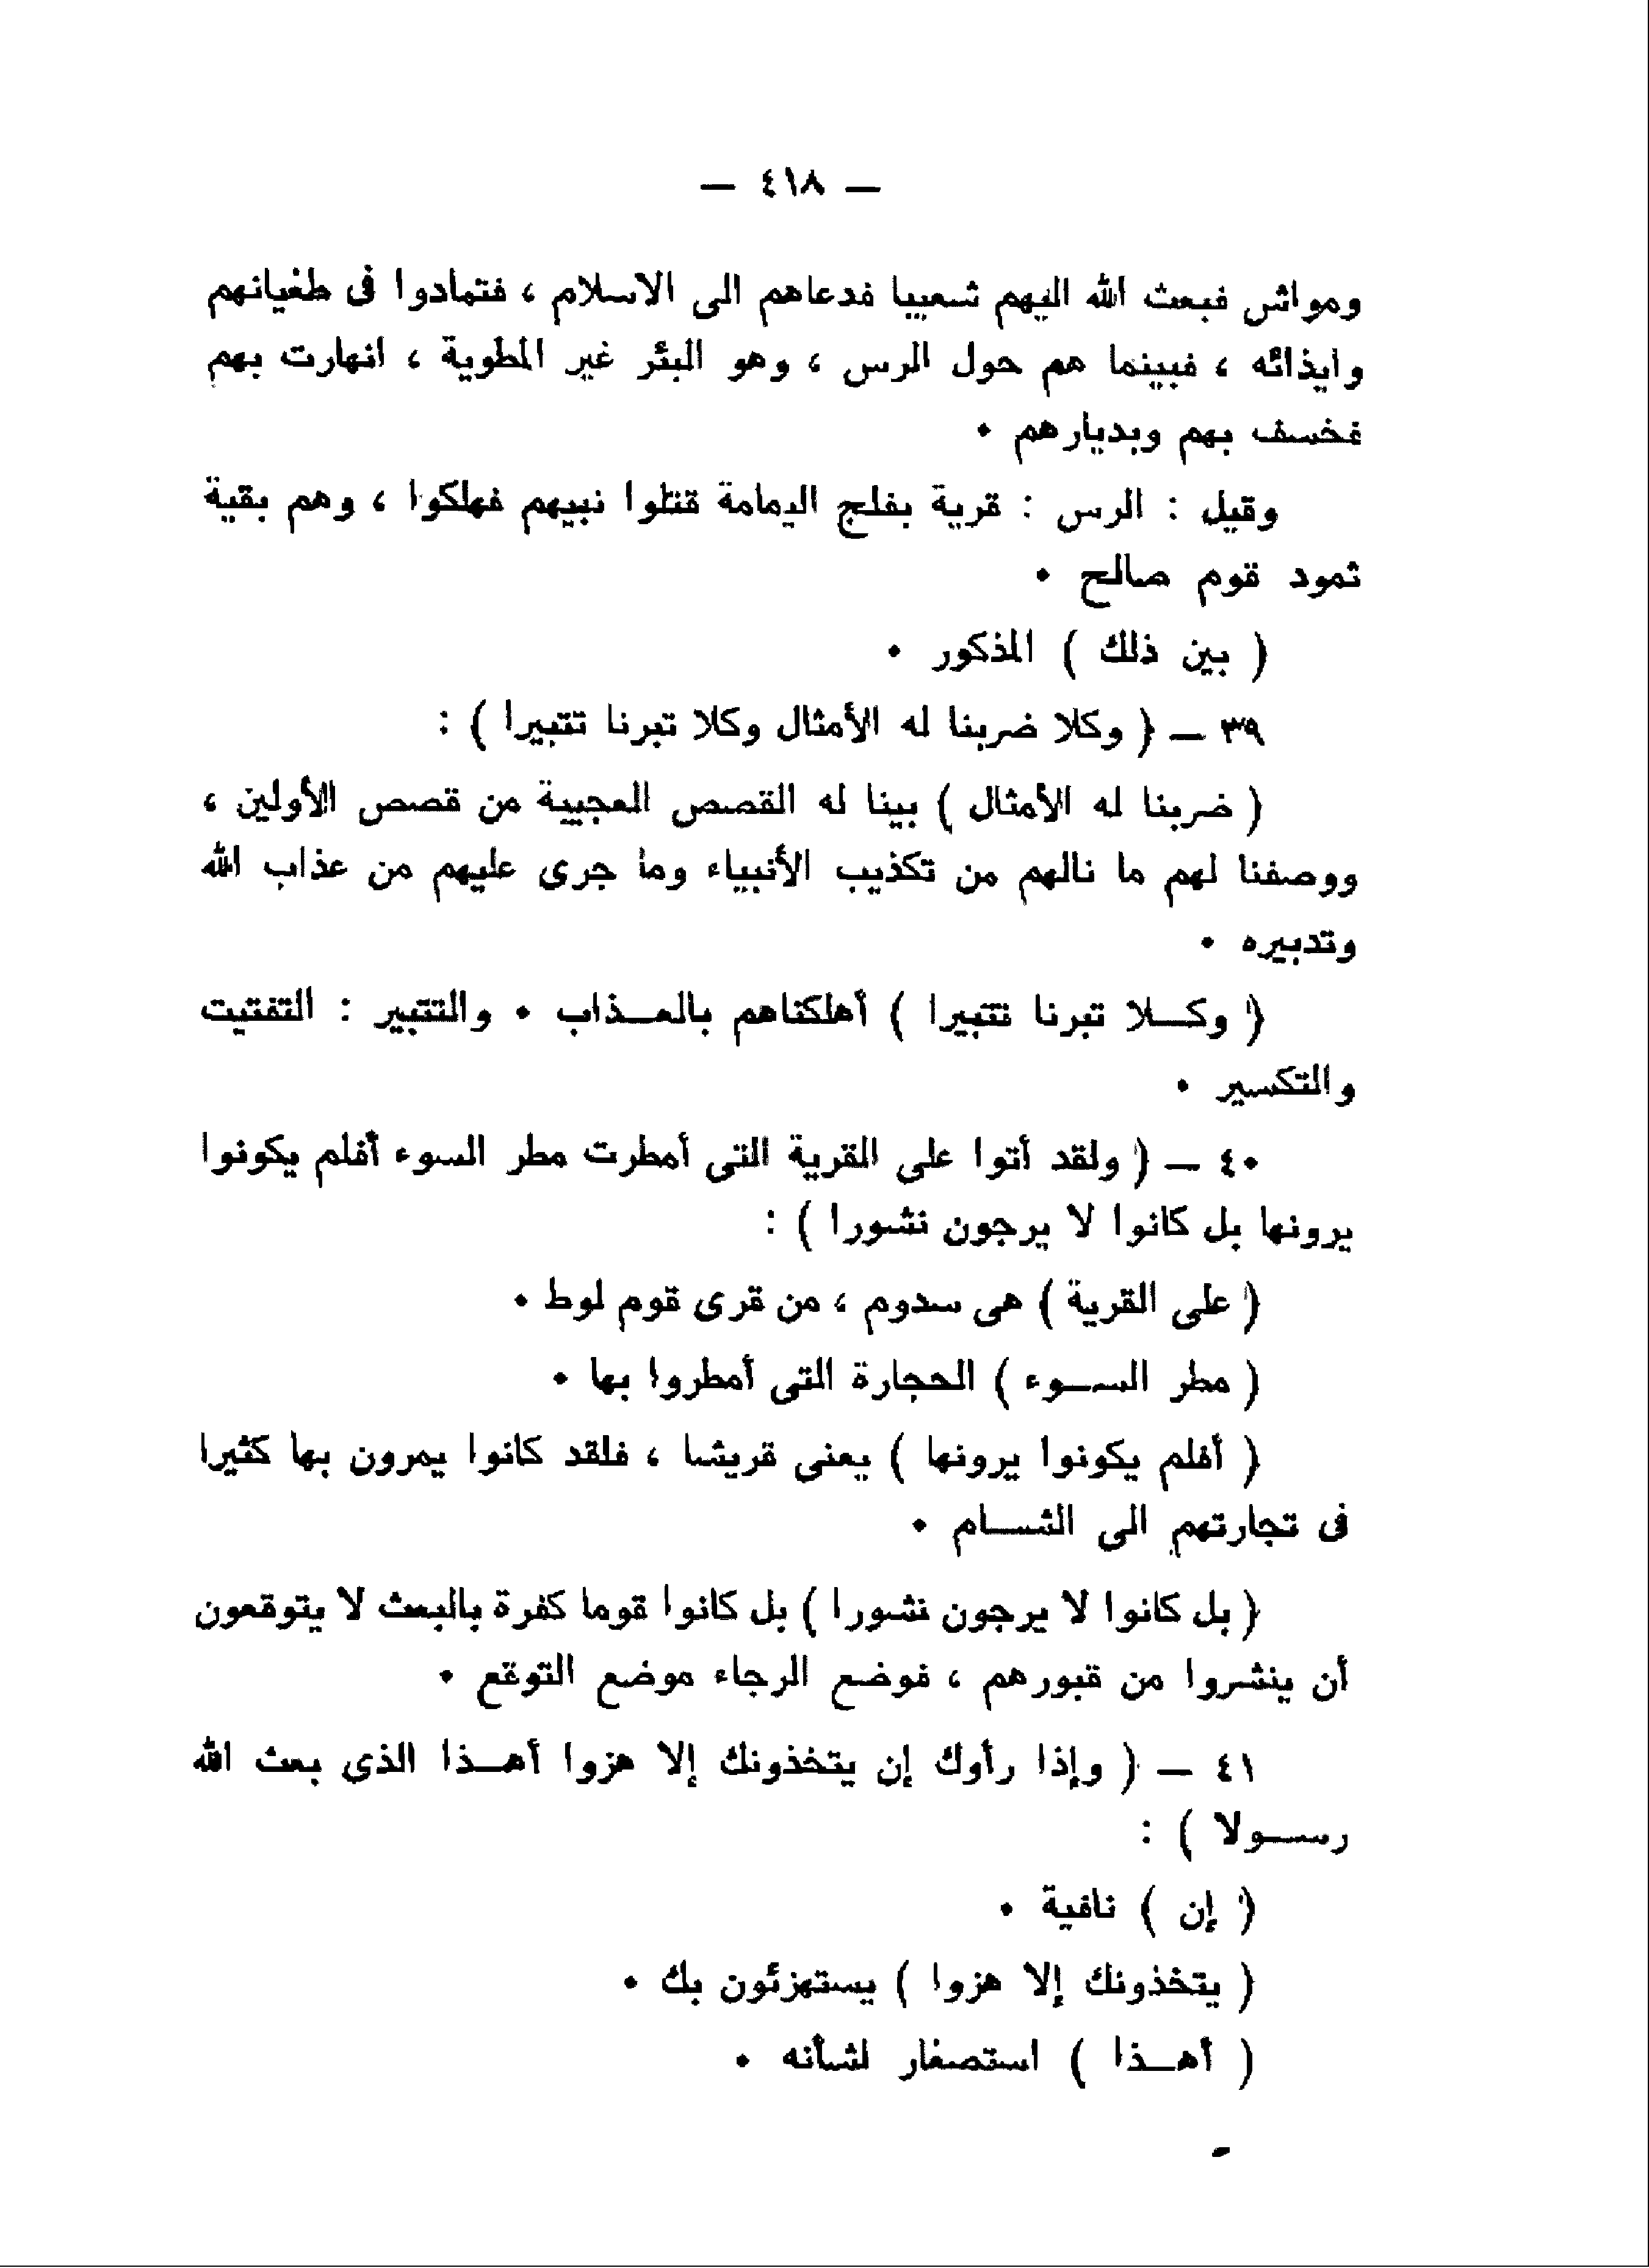 — ٤١٨ —
ومواش فبعث الله اليهم شعيبا فدعاهم الى الاسلام ، فتمادوا فى طغيانهم
وايذائه ، فبينما هم حول الرس ، وهو البئر غير المطوية ، انهارت بهم
فخسف بهم وبديارهم .
وقيل : الرس : قرية بفلج اليمامة قتلوا نبيهم فهلكوا ، وهم بقية
ثمود قوم صالح .
( بين ذلك ) المذكور .
٣٩ — ( وكلا ضربنا له الأمثال وكلا تبرنا تتبيرا ) :
( ضربنا له الأمثال ) بينا له القصص العجيبة من قصص الأولين ،
ووصفنا لهم ما نالهم من تكذيب الأنبياء وما جرى عليهم من عذاب الله
وتدبيره .
( وكــلا تبرنا تتبيرا ) أهلكناهم بالعــذاب . والتتبير : التفتيت
والتكسير .
٤٠ — ( ولقد أتوا على القرية التى أمطرت مطر السوء أفلم يكونوا
يرونها بل كانوا لا يرجون نشورا ) :
( على القرية ) هى سدوم ، من قرى قوم لوط .
( مطر الســوء ) الحجارة التى أمطروا بها .
( أفلم يكونوا يرونها ) يعنى قريشا ، فلقد كانوا يمرون بها كثيرا
فى تجارتهم الى الشــام .
( بل كانوا لا يرجون نشورا ) بل كانوا قوما كفرة بالبعث لا يتوقعون
أن ينشروا من قبورهم ، فوضع الرجاء موضع التوقع .
٤١ — ( وإذا رأوك إن يتخذونك إلا هزوا أهــذا الذى بعث الله
رســولا ) :
( إن ) نافية .
( يتخذونك إلا هزوا ) يستهزئون بك .
( أهــذا ) استصغار لشأنه .